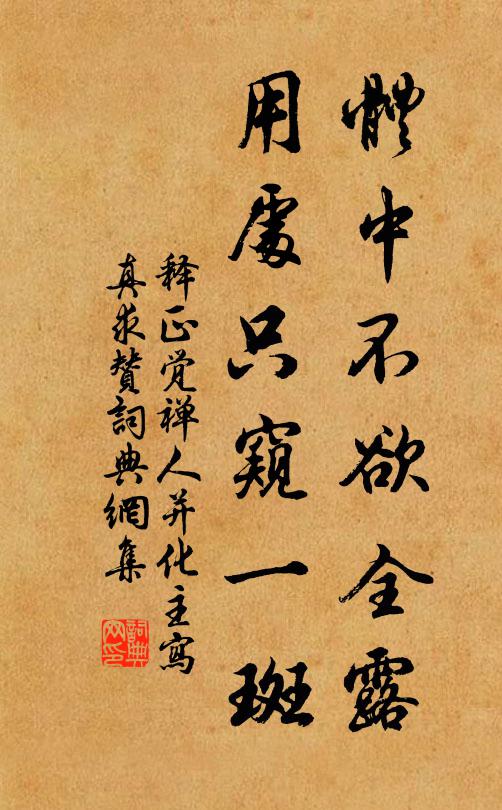 體中不欲全露
用處只窺一斑
释正觉禅人并化主寫
真求贊詞典網集
詞典網印